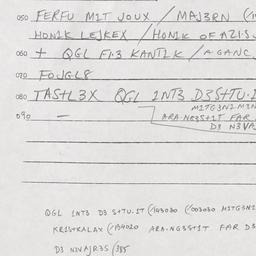 050 FERFU M1T JOUX / MAJ3RN
HON1K LEJKEX / HON1K OF AZ1S
060 + QGL F1.3 KANT1K / A.GANC
070 FOJGL8
080 TAS+L3X QGL 1NT3 D3S+TU.I
M1TG3N1M3N
090 — ARA.NG3S+1T FAR
D3 N3VA
QGL 1NT3 D3 S+TU.1T (143030 / 003030 M1TG3N1
KR1S+KALAX (134020 ARA.NG3S+1T FAR D3
D3 N3VAJR3S / 385